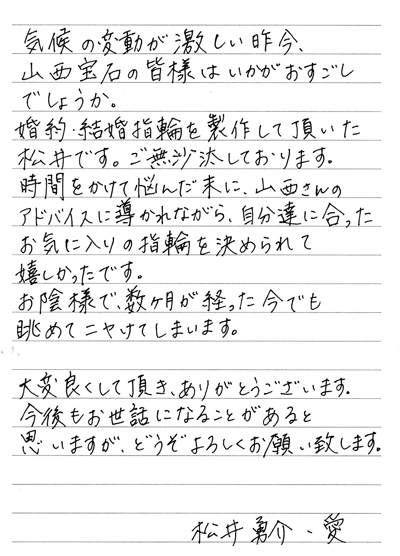 気候の変動が激しい昨今、
山西宝石の皆様はいかがおすごし
でしょうか。
婚約・結婚指輪を製作して頂いた
松井です。ご無沙汰しております。
時間をかけて悩んだ末に、山西さんの
アドバイスに導かれながら、自分達に合った
お気に入りの指輪を決められて
嬉しかったです。
お陰様で、数ヶ月が経った今でも
眺めてニヤけてしまいます。
大変良くして頂き、ありがとうございます。
今後もお世話になることがあると
思いますが、どうぞよろしくお願い致します。
松井勇介・愛